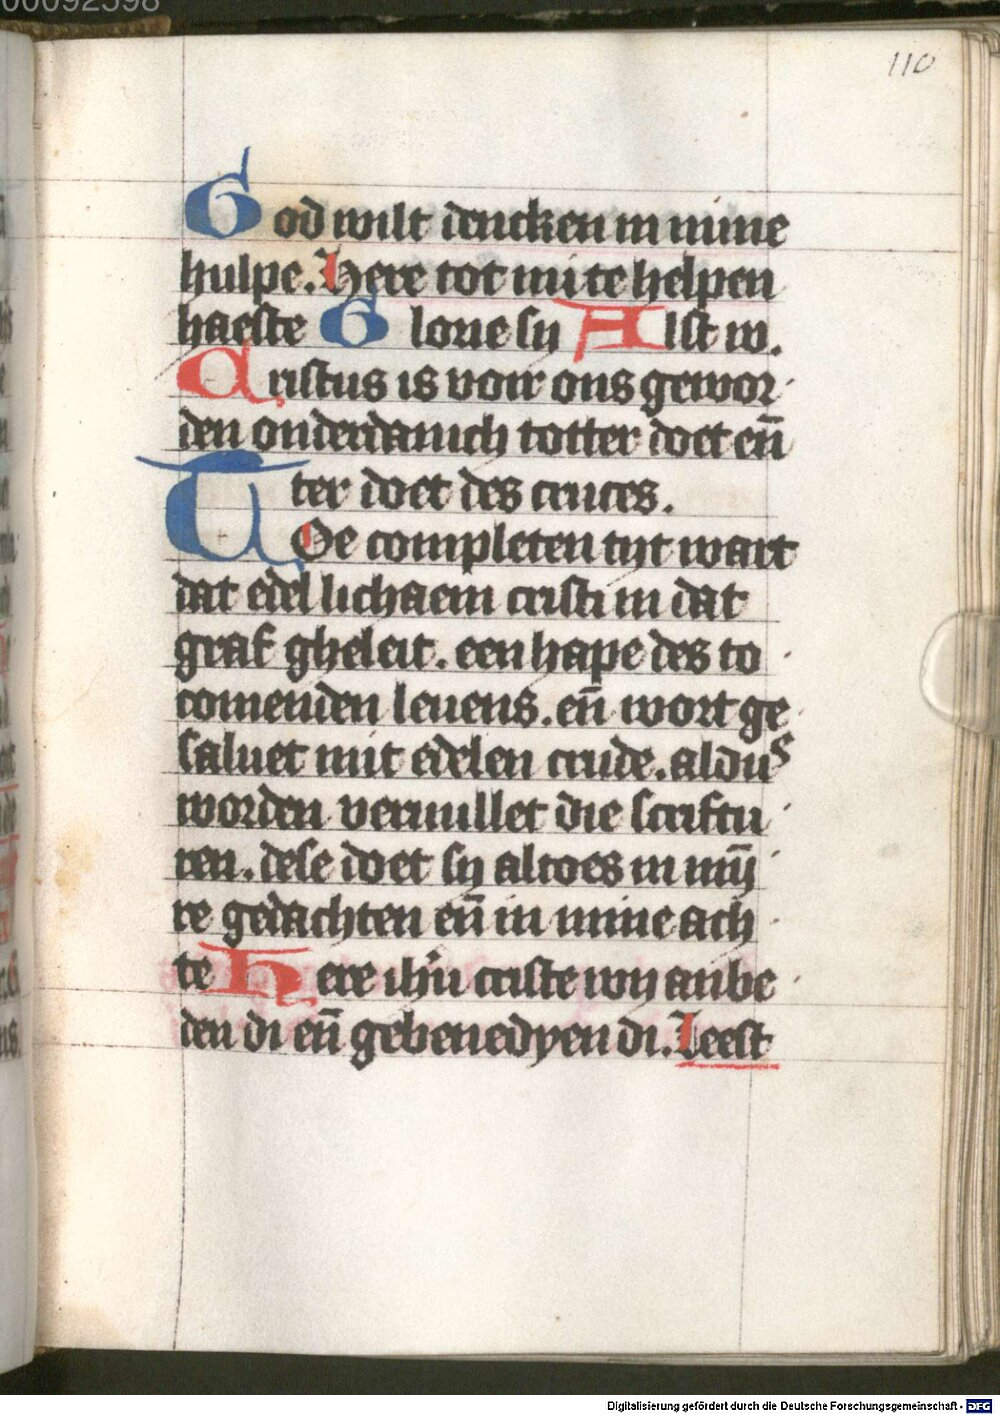 00092598
110
God wilt dencken in mine
hulpe. Here tot mi te helpen
haeste Glorie sy Alst w.
Cristus is voir ons gewor
den onderdanich totter doet en̄
ter doet des cruces.
Toe completen tyt wart
dat edel lichaem cristi in dat
graf gheleit. een hape des to
comenden leuens. en̄ wort ge
saluet mit edelen crude. aldus
worden veruullet die scriftu
ren. dese doet sy altoes in mȳ
re gedachten en̄ in mine ach
te Here ihu̅ criste wy anbe
den di en̄ gebenedyen di. Leest
Digitalisierung gefördert durch die Deutsche Forschungsgemeinschaft - DFG